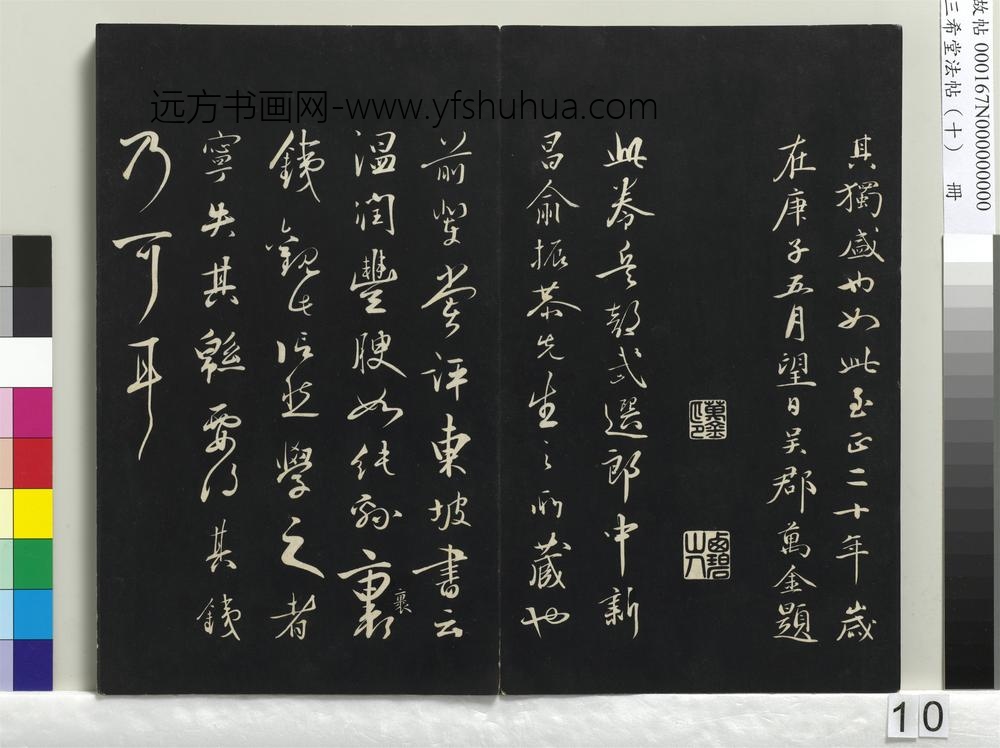 故帖 000167N000000000
三希堂法帖（十） 冊
远方书画网-www.yfshuhua.com
其獨盛也如此至正二十年歲
在庚子五月望日吴郡萬金題
此卷兵部武選郎中新
昌俞振恭先生之所藏也
前輩嘗評東坡書云
温潤豐腴如純綿裹
裹
鐵觀此信然學之者
寧失其綿要得其鐵
乃可耳
10